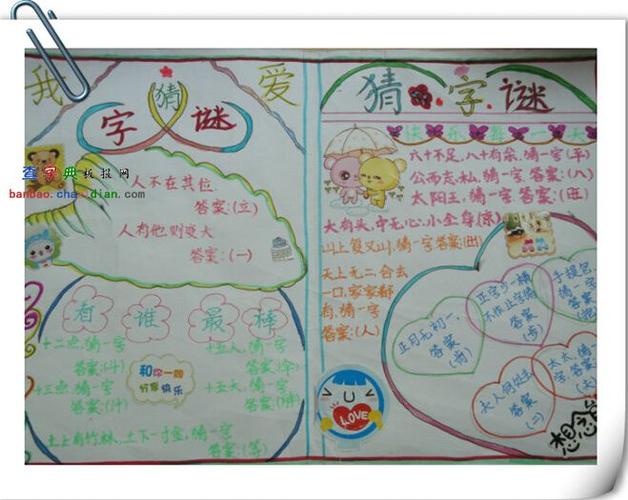 我 爱
猜
字 谜
查字典板报网
banbao.chazidian.com
人不在其位
答案:(立)
人有他则变大
答案:(一)
有 谁 最 棒
十二点,猜一字
答案:(斗)
十三点,猜一字
答案:(汁)
十五人,猜一字
答案:(伞)
十五天,猜一字
答案:(胖)
和你一起
分享快乐
土上有竹林,土下一寸金,猜一字
答案:(等)
猜 字 谜
快乐每一天
六十不足,八十有余,猜一字(平)
公而忘私,猜一字 答案:(八)
太阳王,猜一字 答案:(旺)
大有头,中无心,小全身(京)
山上复又山,猜一字 答案:(出)
天上无二,合去
一口,家家都
有,猜一字
答案:(人)
LOVE
正月无初一,
答案:
(肯)
正字少一横
不作止字猜
答案:
(步)
手提包,
猜一字
答案:
(抱)
大人何处去
答案
(二)
太太,猜一
字,答案:
想念